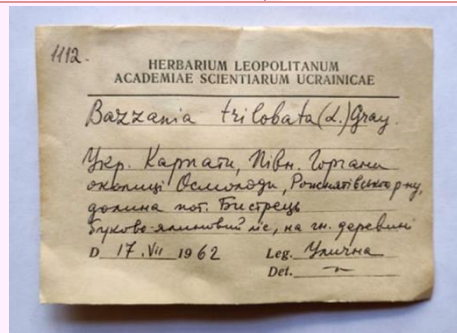 1192.
HERBARIUM LEOPOLITANUM
ACADEMIAE SCIENTIARUM UCRAINICAE
Bazzania trilobata (L.) Gray.
Укр. Карпати, Півн. Горгани
околиці Осмолоди, Рожнятівського р-ну,
долина пот. Бистрець
буково-ялиновий ліс, на гн. деревині
D 17. VII 1962 Leg. Улична
Det. —〃—